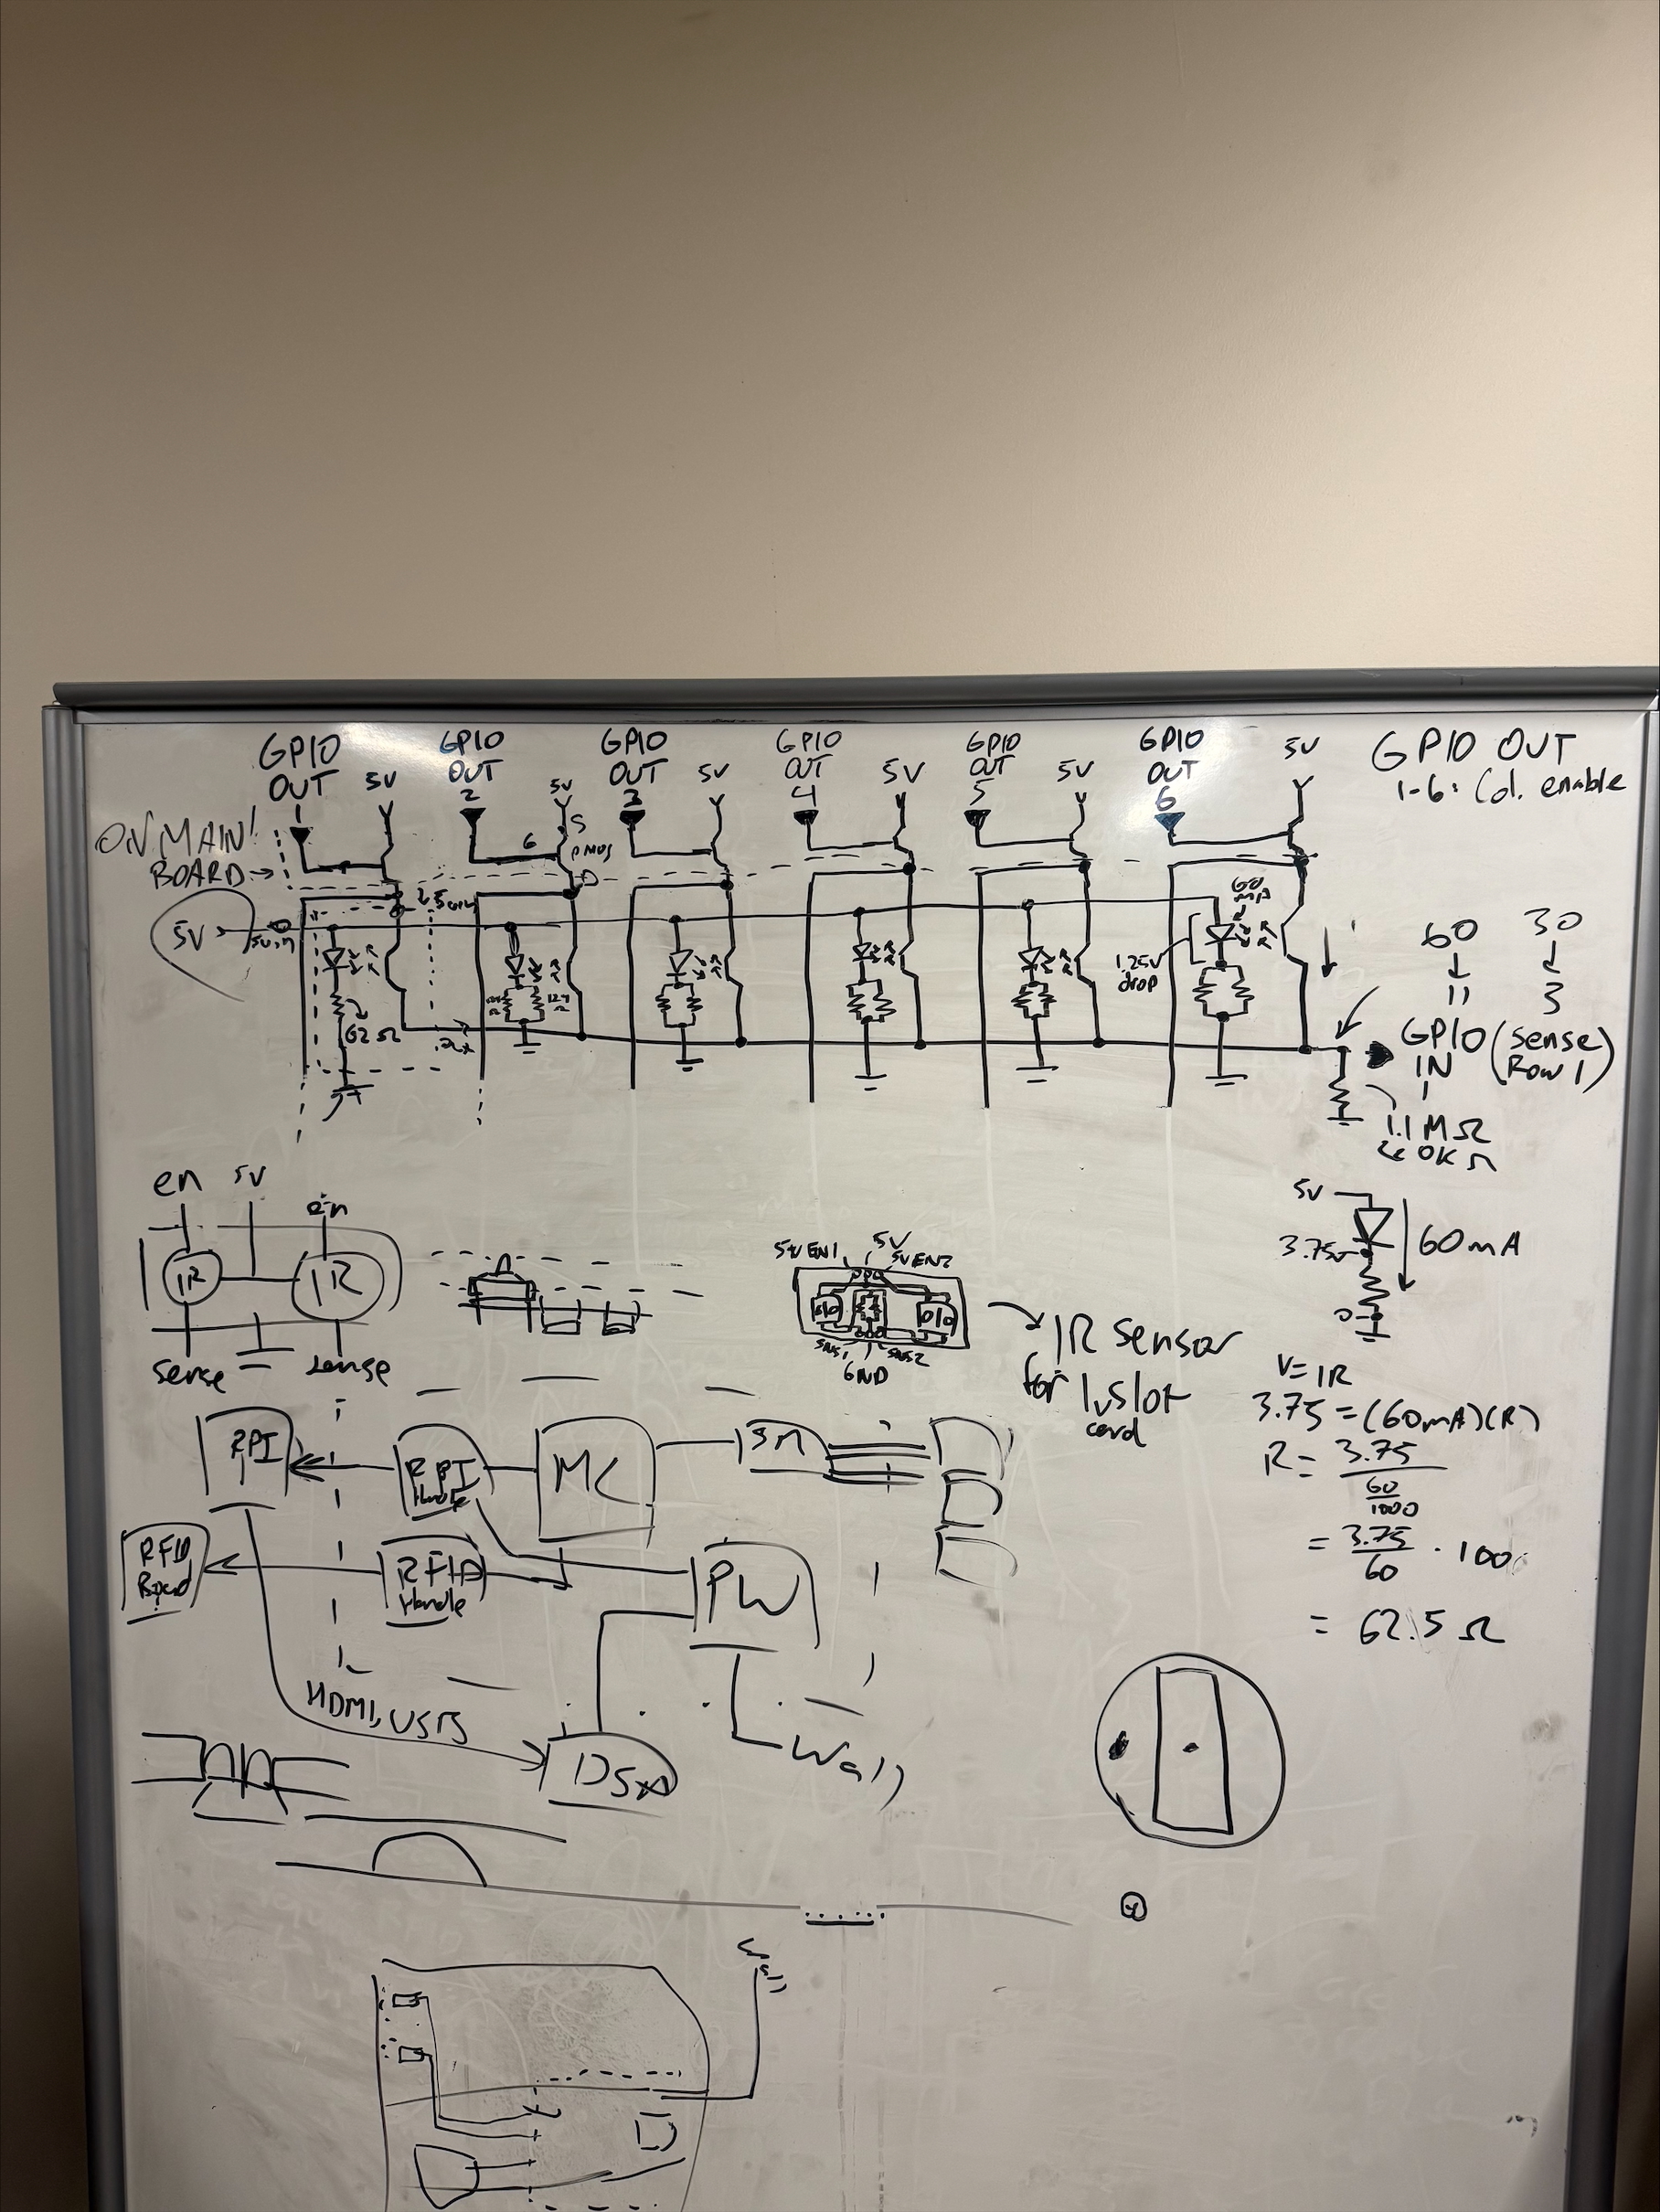 GPIO OUT 1
5V
GPIO OUT 2
5V
GPIO OUT 3
5V
GPIO OUT 4
5V
GPIO OUT 5
5V
GPIO OUT 6
5V
GPIO OUT
1-6: Col. enable
ON MAIN!
BOARD →
G
S
PMOS
D
5V
5Vin
62Ω
60
mA
1.25V
drop
60
↓
11
30
↓
3
GPIO
IN
1
(sense
Row 1)
1.1MΩ
en
5V
en
IR
IR
sense
sense
5V EN1
5V
5V EN2
SNS1
SNS2
GND
IR sensor
for 1 slot
card
5V
3.75V
0
60mA
V=IR
3.75 = (60mA)(R)
R = 3.75
60
1000
= 3.75
60 · 1000
= 62.5 Ω
RPI
RPI
Handle
MC
SM
RFID
Board
RFID
Handle
PW
HDMI, USB
Wall
Wall